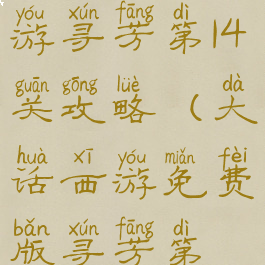 yóu xún fāng dì
游寻芳第14
guān gōng lüè dà
关攻略（大
huà xī yóu miǎn fèi
话西游免费
bǎn xún fāng dì
版寻芳第